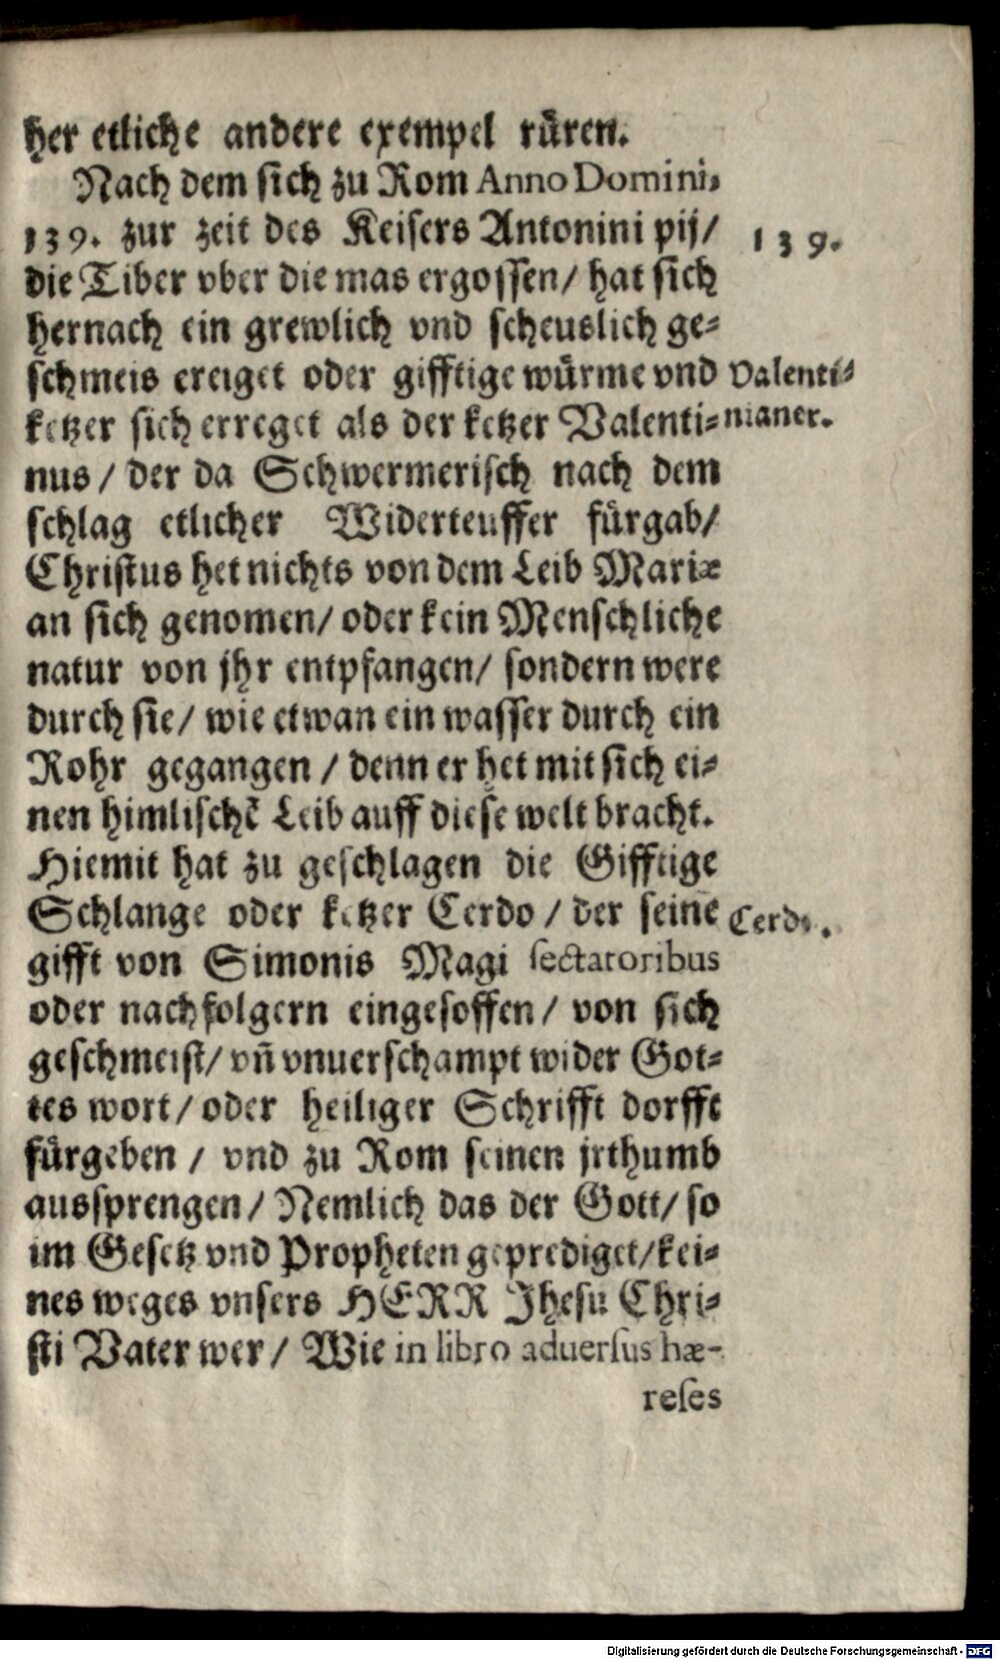 her etliche andere exempel rüren.
Nach dem sich zu Rom Anno Domini,
139. zur zeit des Keisers Antonini pij/
139.
die Tiber vber die mas ergossen/ hat sich
hernach ein grewlich vnd scheuslich ge-
schmeis ereiget oder gifftige würme vnd
Valenti-
ketzer sich erreget als der ketzer Valenti-
nianer.
nus/ der da Schwermerisch nach dem
schlag etlicher Widerteuffer fürgab/
Christus het nichts von dem Leib Mariæ
an sich genomen/ oder kein Menschliche
natur von jhr entpfangen/ sondern were
durch sie/ wie etwan ein wasser durch ein
Rohr gegangen/ denn er het mit sich ei-
nen himlischē Leib auff diese welt bracht.
Hiemit hat zu geschlagen die Gifftige
Schlange oder ketzer Cerdo/ der seine
Cerdo.
gifft von Simonis Magi sectatoribus
oder nachfolgern eingesoffen/ von sich
geschmeist/ vñ vnuerschampt wider Got-
tes wort/ oder heiliger Schrifft dorfft
fürgeben/ vnd zu Rom seinen jrthumb
aussprengen/ Nemlich das der Gott/ so
im Gesetz vnd Propheten geprediget/ kei-
nes weges vnsers HERR Jhesu Chri-
sti Vater wer/ Wie in libro aduersus hæ-
reses
Digitalisierung gefördert durch die Deutsche Forschungsgemeinschaft - DFG